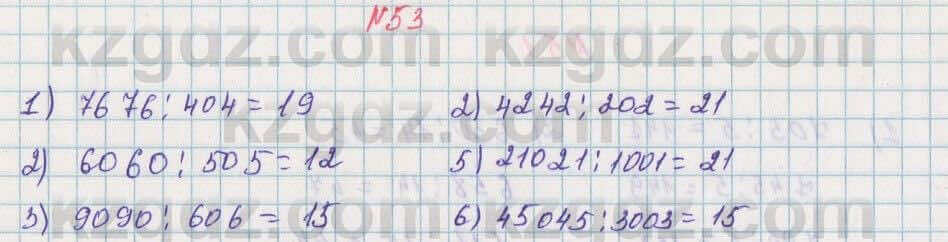 N53
kzgdz.com kzgdz.com
1) 7676 : 404 = 19 2) 4242 : 202 = 21
kzgdz.com
2) 6060 : 505 = 12 5) 21021 : 1001 = 21
3) 9090 : 606 = 15 6) 45045 : 3003 = 15
kzgdz.com kzgdz.com